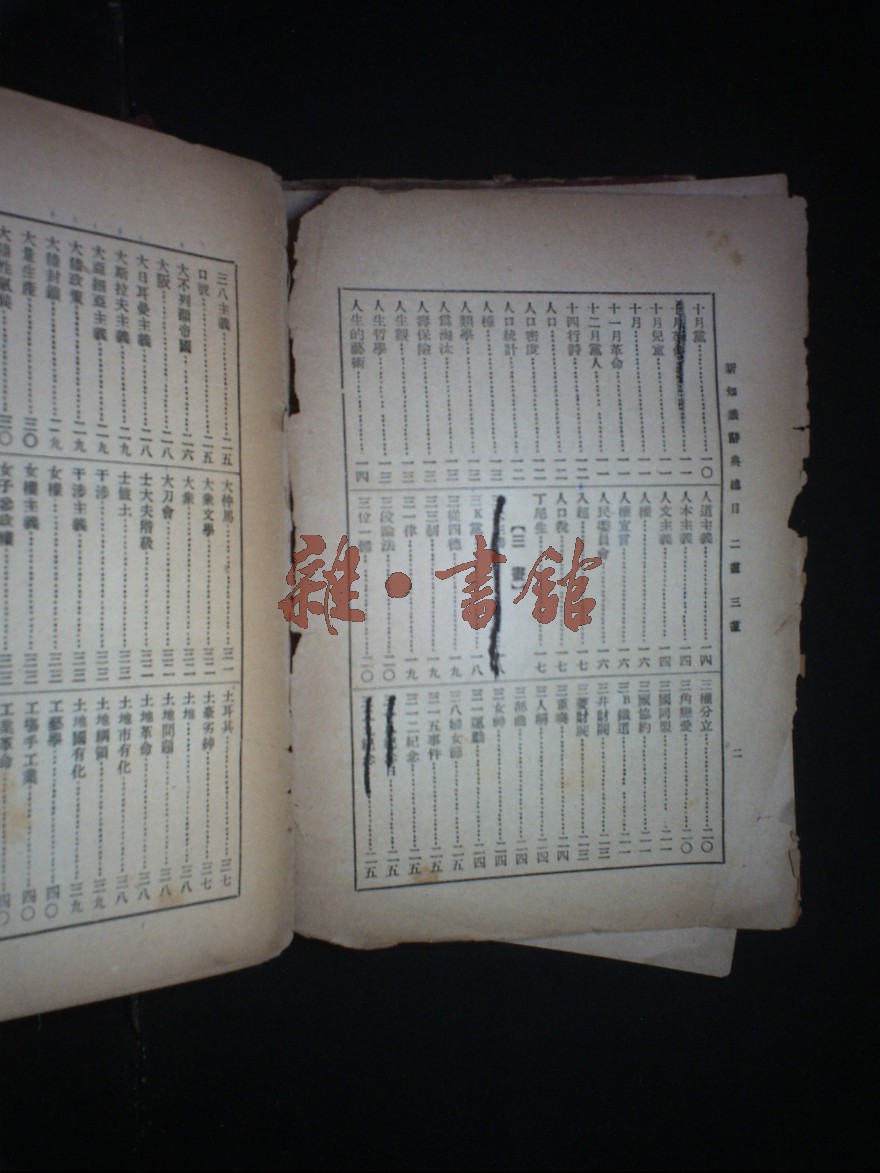 新知識辭典總目 二畫 三畫
二
十月黨 一〇
十月兒童 一一
十月 一一
十一月革命 一一
十二月黨人 一一
十四行詩 一二
人口 一二
人口密度 一二
人口統計 一二
人種
人類學
人為淘汰
人壽保險 一三
人生觀 一三
人生哲學 一三
人生的藝術 一四
人道主義 一四
人本主義 一四
人文主義 一四
人權
人權宣言 一六
人民委員會 一六
入超 一七
人口稅 一七
丁尾生 一七
【三畫】
三K黨 一八
三從四德 一九
三三制 一九
三一律 一九
三段論法 二〇
三位一體 二〇
三權分立 二〇
三角戀愛 二〇
三國同盟 二一
三國協約 二一
三B鐵道 二一
三井財閥
三菱財閥 二三
三重奏 二四
三人稱 二四
三部曲 二四
三女神 二四
三一運動 二四
三八婦女節 二五
三一五事件 二五
三一二紀念 二五
二五
二五
三八主義 二五
口號 二五
大不列顛帝國 二六
大阪 二八
大日耳曼主義 二八
大斯拉夫主義 二九
大亞細亞主義 二九
大陸政策 二九
大陸封鎖 二九
大量生產 三〇
大陸性氣候 三〇
大仲馬 三一
大眾文學 三一
大眾 三一
大刀會 三一
士大夫階級 三二
士敏土 三二
干涉 三二
干涉主義 三二
女權 三三
女權主義 三三
女子參政權 三三
土耳其 三七
土豪劣紳 三七
土地 三八
土地問題 三八
土地革命 三八
土地市有化 三八
土地綱領 三九
土地國有化 三九
工藝學 四〇
工場手工業 四〇
工業革命 四〇
雜·書館